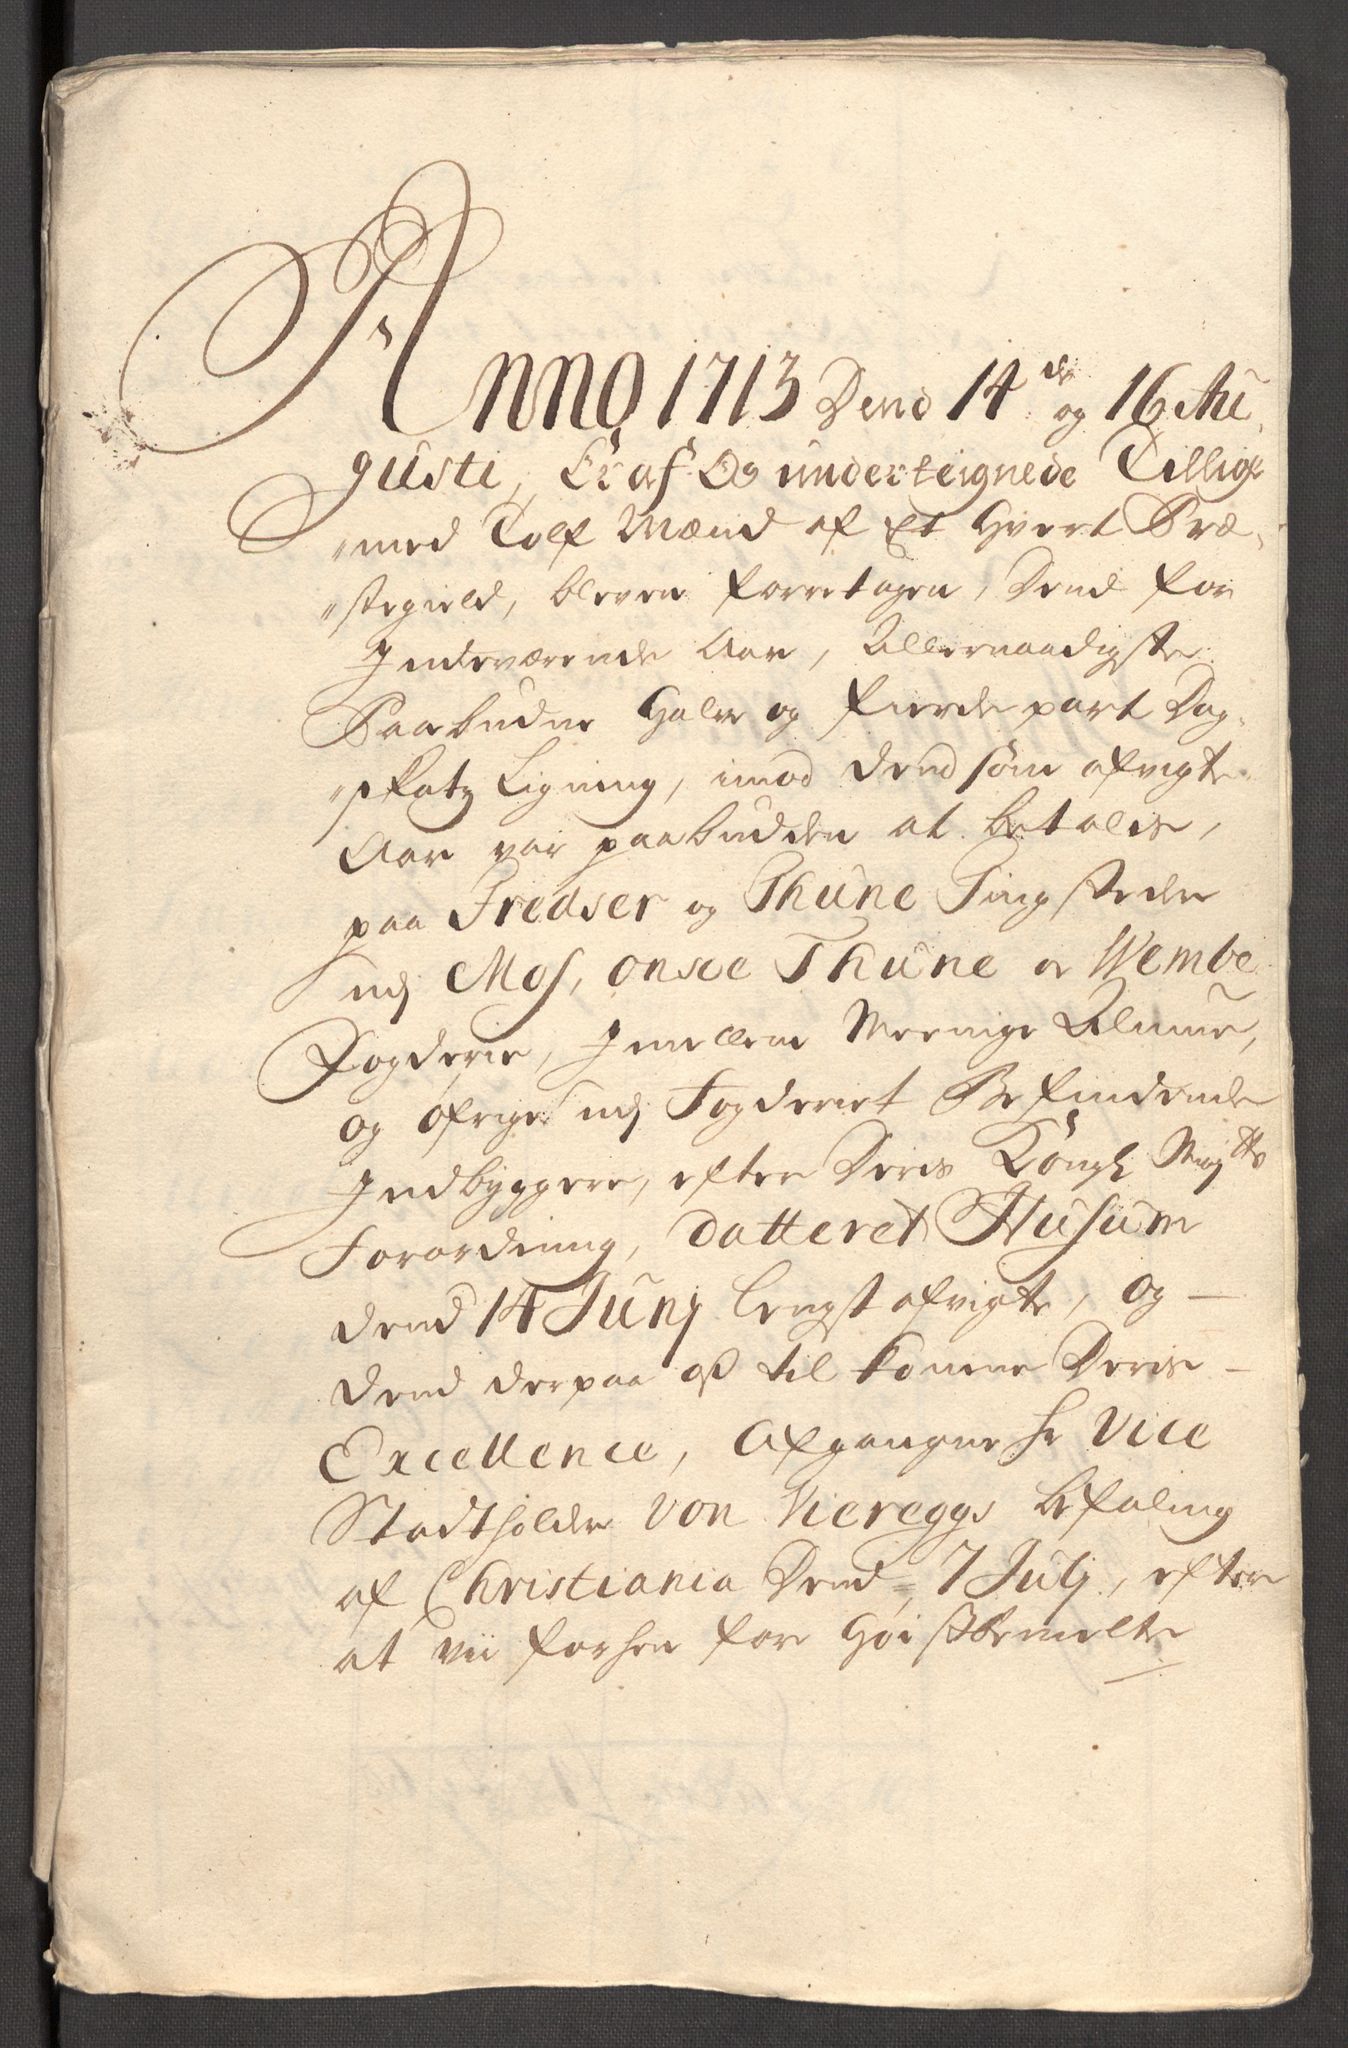 Anno 1713 Dend 14de og 16 Au-
gusti, Er af Os underteignede Tillige
med Tolf Mænd af Et Hvert Præ-
stegield, bleven forretagen, Dend for
Indeværende Aar, Allernaadigste
Paabudne Halve og fierde part Dag-
skatz Ligning, imod dend som afvigte
Aar var paabudden at betalis,
paa Fredser og Thune Tingsteder
udj Mos, onsøe Thune og Wembe
Fogderie, Imellem Meenige Almue,
og øfrige udj Fogderiet Befindende
Indbyggere, efter Deris Kongl Maytts
Forordning, datteret Husum
dend 14 Junj lengst afvigte, og
dend derpaa oß til komne Deris
Excellence, Afgangne hr Vice
Stadtholder Von Vieregges befaling
af Christiania Dend 7 Julj, efter
at vii forhen for Høistbemelte